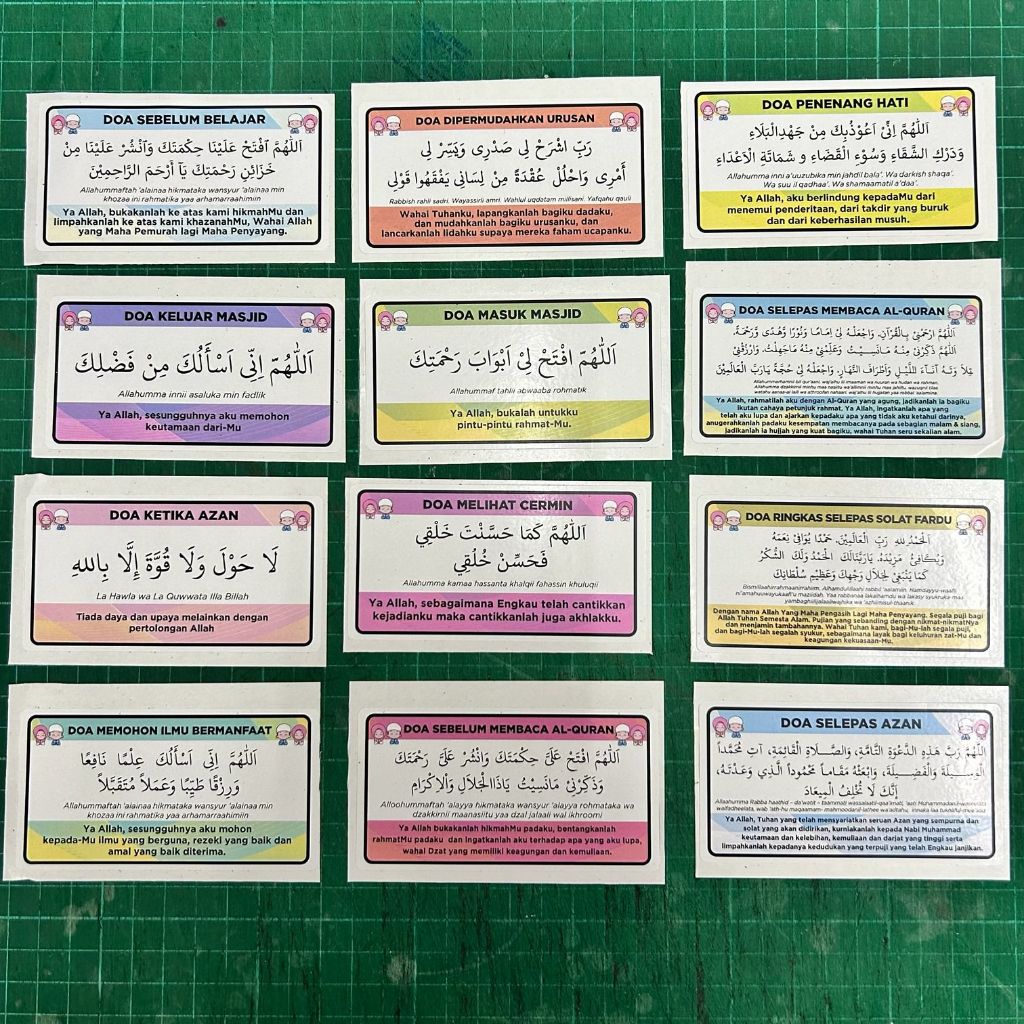 DOA SEBELUM BELAJAR
اَللّٰهُمَّ افْتَحْ عَلَيْنَا حِكْمَتَكَ وَانْشُرْ عَلَيْنَا مِنْ
خَزَائِنِ رَحْمَتِكَ يَآ أَرْحَمَ الرَّاحِمِيْنَ
Allahummaftah 'alainaa hikmataka wansyur 'alainaa min
khozaa ini rahmatika yaa arhamarraahimiin
Ya Allah, bukakanlah ke atas kami hikmahMu dan
limpahkanlah ke atas kami khazanahMu, Wahai Allah
yang Maha Pemurah lagi Maha Penyayang.
DOA DIPERMUDAHKAN URUSAN
رَبِّ اشْرَحْ لِى صَدْرِى وَيَسِّرْ لِى
أَمْرِى وَاحْلُلْ عُقْدَةً مِنْ لِسَانِى يَفْقَهُوا قَوْلِى
Rabbish rahli sadri. Wayassirli amri. Wahlul uqdatam millisani. Yafqahu qauli
Wahai Tuhanku, lapangkanlah bagiku dadaku,
dan mudahkanlah bagiku urusanku, dan
lancarkanlah lidahku supaya mereka faham ucapanku.
DOA PENENANG HATI
اَللّٰهُمَّ اِنِّىْ اَعُوْذُبِكَ مِنْ جَهْدِالْبَلَاءِ
وَدَرَكِ الشَّقَاءِ وَسُوْءِ الْقَضَاءِ و شَمَاتَةِ الْاَعْدَاءِ
Allahumma inni a'uuzubika min jahdil bala'. Wa darkish shaqa'.
Wa suu il qadhaa'. Wa shamaamatil a'daa'.
Ya Allah, aku berlindung kepadaMu dari
menemui penderitaan, dari takdir yang buruk
dan dari keberhasilan musuh.
DOA KELUAR MASJID
اَللّٰهُمَّ اِنِّى اَسْأَلُكَ مِنْ فَضْلِكَ
Allahumma innii asaluka min fadlik
Ya Allah, sesungguhnya aku memohon
keutamaan dari-Mu
DOA MASUK MASJID
اَللّٰهُمَّ افْتَحْ لِىْ اَبْوَابَ رَحْمَتِكَ
Allahummaf tahlii abwaaba rohmatik
Ya Allah, bukalah untukku
pintu-pintu rahmat-Mu.
DOA SELEPAS MEMBACA AL-QURAN
اَللّٰهُمَّ ارْحَمْنِىْ بِالْقُرْآنِ. وَاجْعَلْهُ لِىْ اِمَامًا وَنُوْرًا وَّهُدًى وَّرَحْمَةً.
اَللّٰهُمَّ ذَكِّرْنِىْ مِنْهُ مَانَسِيْتُ وَعَلِّمْنِىْ مِنْهُ مَاجَهِلْتُ. وَارْزُقْنِىْ
تِلَاوَتَهُ آنَاءَ اللَّيْلِ وَاَطْرَافَ النَّهَارِ. وَاجْعَلْهُ لِىْ حُجَّةً يَارَبَّ الْعَالَمِيْنَ
Ya Allah, rahmatilah aku dengan Al-Quran yang agung, jadikanlah ia bagiku
ikutan cahaya petunjuk rahmat. Ya Allah, ingatkanlah apa yang
telah aku lupa dan ajarkan kepadaku apa yang tidak aku ketahui darinya,
anugerahkanlah padaku kesempatan membacanya pada sebagian malam & siang,
jadikanlah ia hujjah yang kuat bagiku, wahai Tuhan seru sekalian alam.
DOA KETIKA AZAN
لَا حَوْلَ وَلَا قُوَّةَ إِلَّا بِاللهِ
La Hawla wa La Quwwata Illa Billah
Tiada daya dan upaya melainkan dengan
pertolongan Allah
DOA MELIHAT CERMIN
اَللّٰهُمَّ كَمَا حَسَّنْتَ خَلْقِي
فَحَسِّنْ خُلُقِي
Allahumma kamaa hassanta khalqii fahassin khuluqii
Ya Allah, sebagaimana Engkau telah cantikkan
kejadianku maka cantikkanlah juga akhlakku.
DOA RINGKAS SELEPAS SOLAT FARDU
اَلْحَمْدُ لِلهِ رَبِّ الْعَالَمِيْنَ. حَمْدًا يُوَافِىْ نِعَمَهُ
وَيُكَافِئُ مَزِيْدَهُ. يَارَبَّنَالَكَ الْحَمْدُ وَلَكَ الشُّكْرُ
كَمَا يَنْبَغِىْ لِجَلَالِ وَجْهِكَ وَعَظِيْمِ سُلْطَانِكَ
Dengan nama Allah Yang Maha Pengasih Lagi Maha Penyayang. Segala puji bagi
Allah Tuhan Semesta Alam. Pujian yang sebanding dengan nikmat-nikmatNya
dan menjamin tambahannya. Wahai Tuhan kami, bagi-Mu-lah segala puji,
dan bagi-Mu-lah segalah syukur, sebagaimana layak bagi keluhuran zat-Mu dan
keagungan kekuasaan-Mu.
DOA MEMOHON ILMU BERMANFAAT
اَللّٰهُمَّ اِنِّى أَسْأَلُكَ عِلْمًا نَافِعًا
وَرِزْقًا طَيِّبًا وَعَمَلاً مُتَقَبَّلاً
Allahummaftah 'alainaa hikmataka wansyur 'alainaa min
khozaa ini rahmatika yaa arhamarraahimiin
Ya Allah, sesungguhnya aku mohon
kepada-Mu ilmu yang berguna, rezeki yang baik dan
amal yang baik diterima.
DOA SEBELUM MEMBACA AL-QURAN
اَللّٰهُمَّ افْتَحْ عَلَىَّ حِكْمَتَكَ وَانْشُرْ عَلَىَّ رَحْمَتَكَ
وَذَكِّرْنِىْ مَانَسِيْتُ يَاذَاالْجَلَالِ وَالْاِكْرَامِ
Alloohummaftah 'alayya hikmataka wansyur 'alayya rohmataka wa
dzakkirnii maanasiitu yaa dzal jalaali wal ikhroomi
Ya Allah bukakanlah hikmahMu padaku, bentangkanlah
rahmatMu padaku dan ingatkanlah aku terhadap apa yang aku lupa,
wahai Dzat yang memiliki keagungan dan kemuliaan.
DOA SELEPAS AZAN
اَللّٰهُمَّ رَبَّ هٰذِهِ الدَّعْوَةِ التَّامَّةِ، وَالصَّلَاةِ الْقَائِمَةِ، آتِ مُحَمَّداً
الْوَسِيْلَةَ وَالْفَضِيْلَةَ، وَابْعَثْهُ مَقَاماً مَحْمُوْداً الَّذِي وَعَدْتَهُ،
إِنَّكَ لَا تُخْلِفُ الْمِيعَادَ
Ya Allah, Tuhan yang telah mensyariatkan seruan Azan yang sempurna dan
solat yang akan didirikan, kurniakanlah kepada Nabi Muhammad
keutamaan dan kelebihan, kemuliaan dan darjat yang tinggi serta
limpahkanlah kepadanya kedudukan yang terpuji yang telah Engkau janjikan.